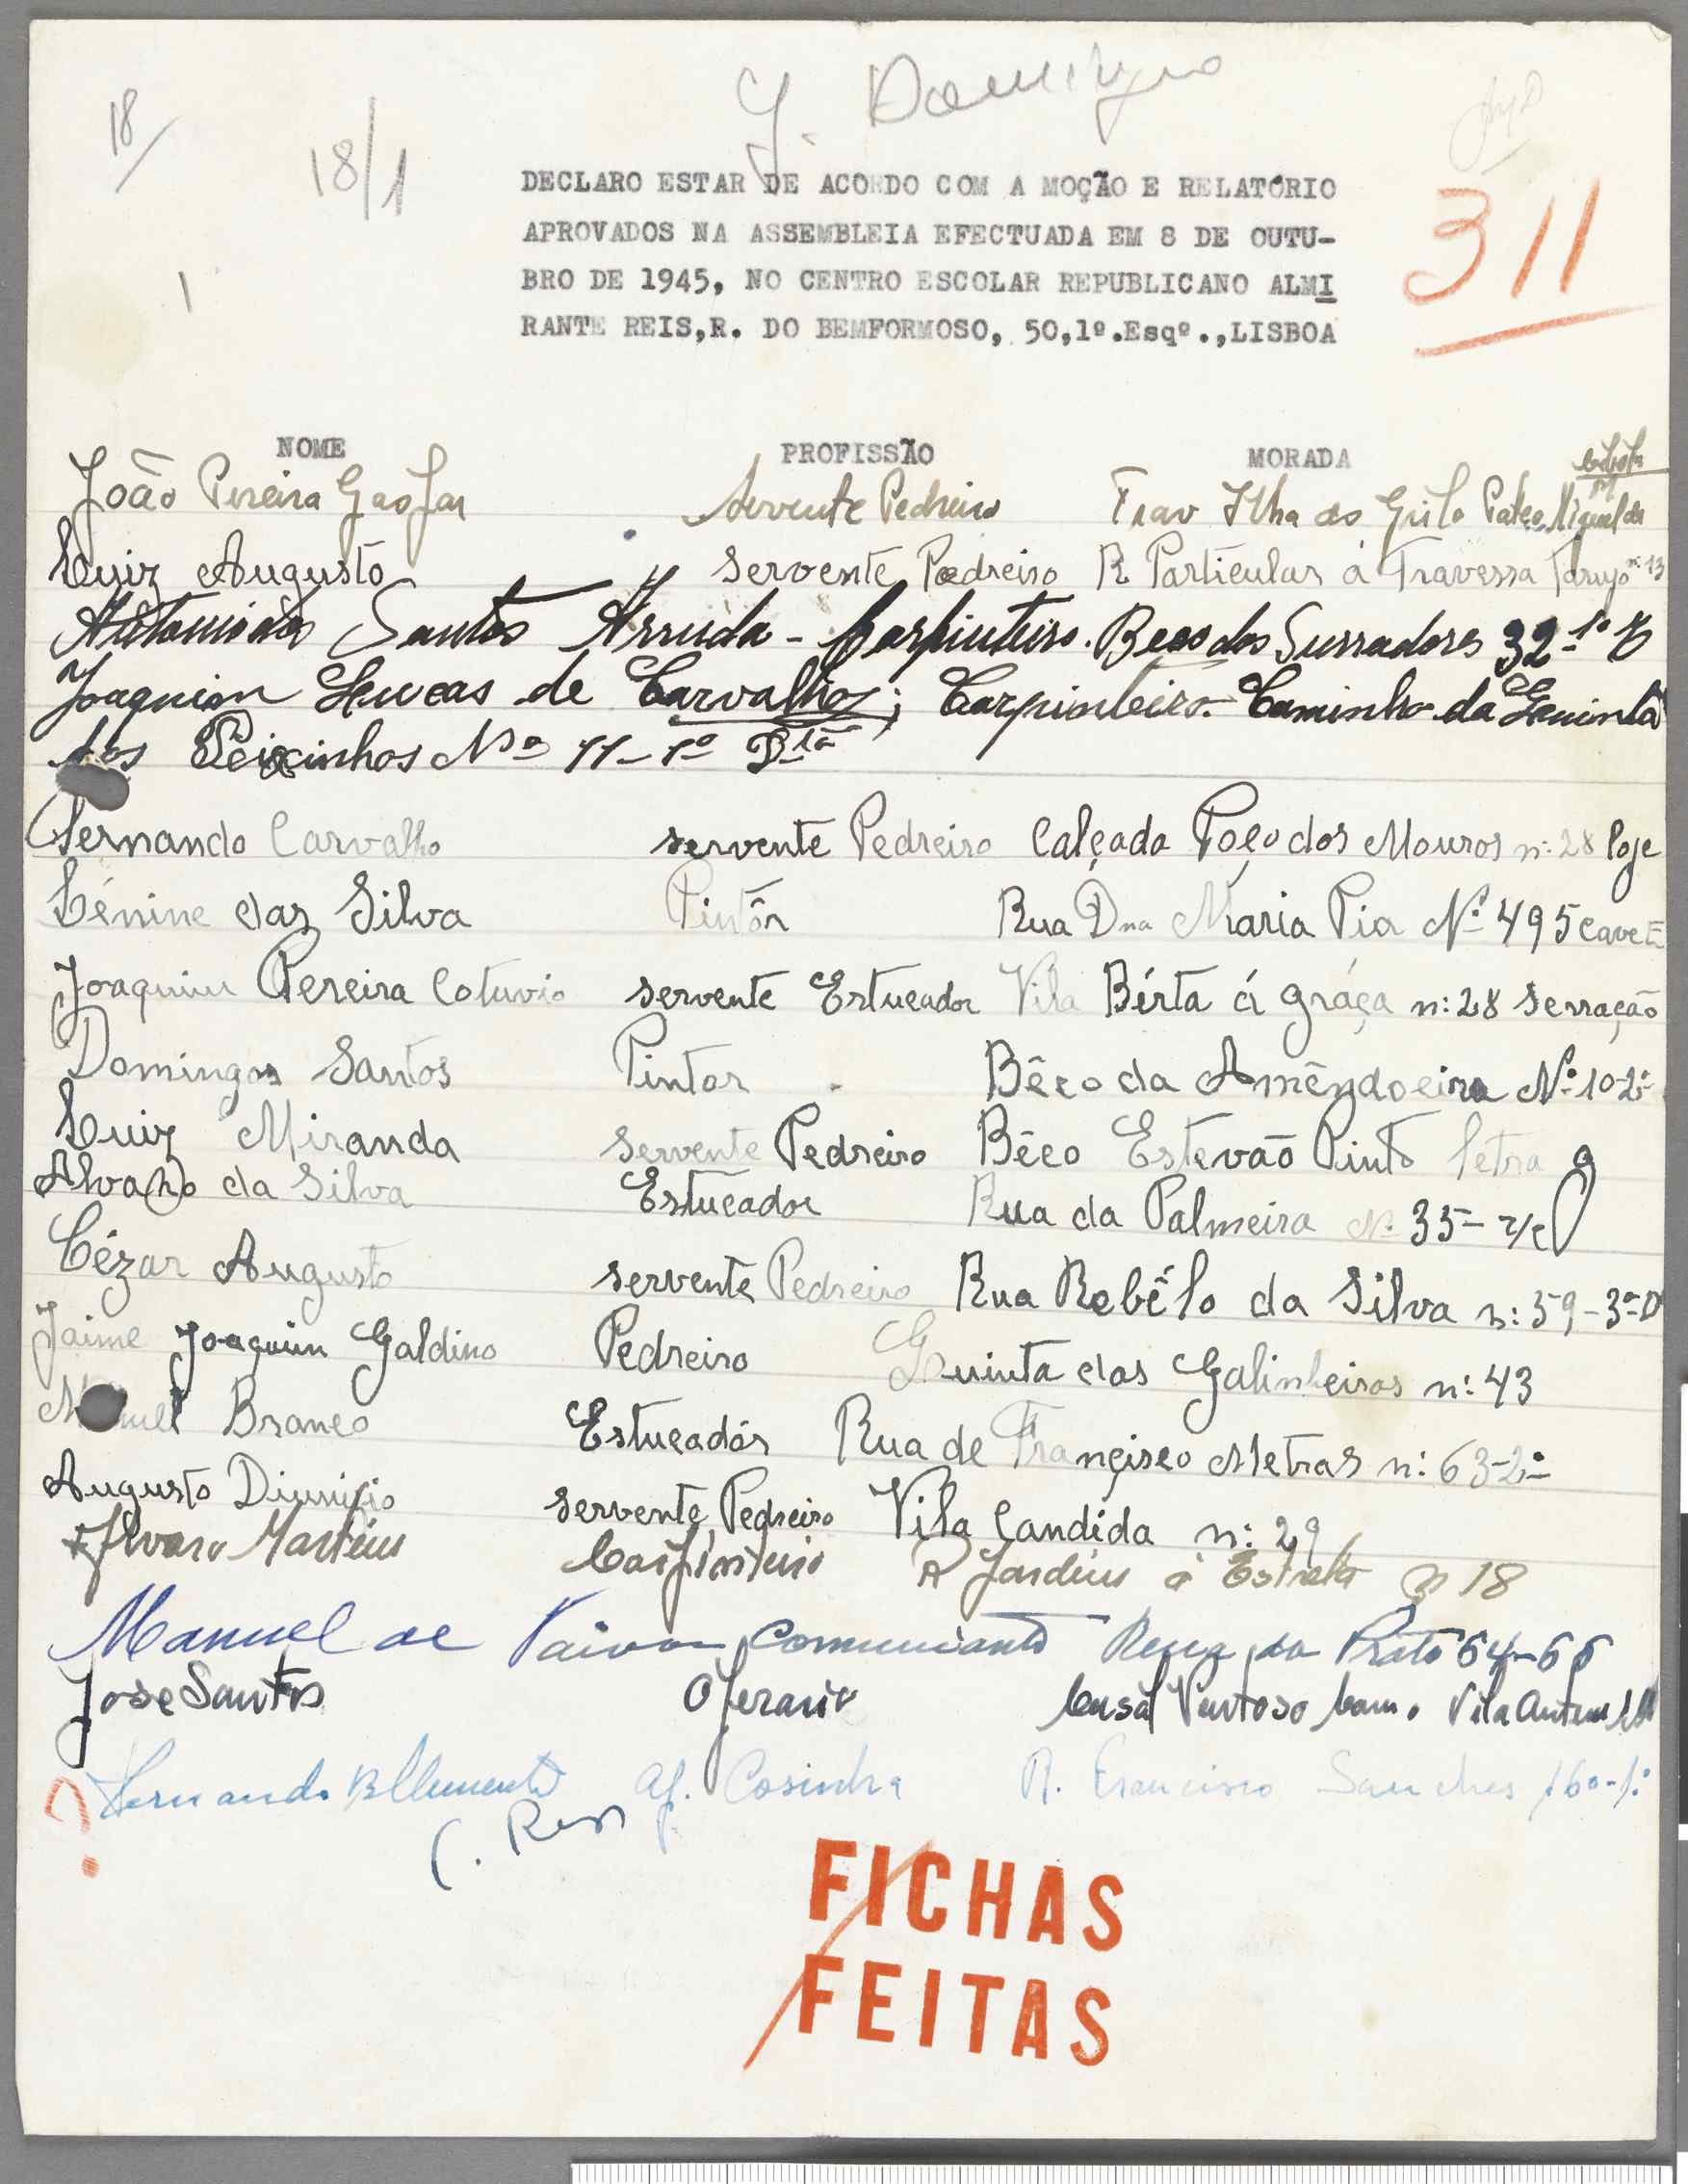 18
18/1
311
DECLARO ESTAR DE ACORDO COM A MOÇÃO E RELATÓRIO
APROVADOS NA ASSEMBLEIA EFECTUADA EM 8 DE OUTU-
BRO DE 1945, NO CENTRO ESCOLAR REPUBLICANO ALMI
RANTE REIS,R. DO BEMFORMOSO, 50,1º.Esqº.,LISBOA
NOME PROFISSÃO MORADA
João Pereira Gaspar servente Pedreiro Trav Ilha do Grilo Pateo Miguel da
Luiz Augusto servente Pedreiro R Particular á Travessa n: 13
Antonio dos Santos Arruda - Carpinteiro. Beco dos Surradores 32-1º
Joaquim Lucas de Carvalho; Carpinteiro. Caminho da
dos Peixinhos Nº 11-1º
Fernando Carvalho servente Pedreiro Calçada Poço dos Mouros n: 28 loje
Lénine das Silva Pintôr Rua Dna Maria Pia Nº 495 cave
Joaquim Pereira Cotuvio servente Estucador Vila Bérta á gráça n: 28 serração
Domingos Santos Pintor Bêco da Amêndoeira Nº 10-2º
Luiz Miranda servente Pedreiro Bêco Estevão Pinto letra
Alvaro da Silva Estucador Rua da Palmeira Nº 35- r/c
Cézar Augusto servente Pedreiro Rua Rebêlo da Silva n: 59-3º D
Jaime Joaquim Galdino Pedreiro Quinta das Galinheiras n: 43
Branco Estucadór Rua de Françisco Metras n: 63-2º
Augusto servente Pedreiro Vila Candida n: 29
Alvaro Martins Carpinteiro R Jardim á Estrela n 18
Manuel de Paiva Comerciante Rua da Prata 64-66
Jose Santos Operario Casal Ventoso Vila
? Fernando Aj. Cosinha R. Francisco Sanches 160-1º
FICHAS
FEITAS